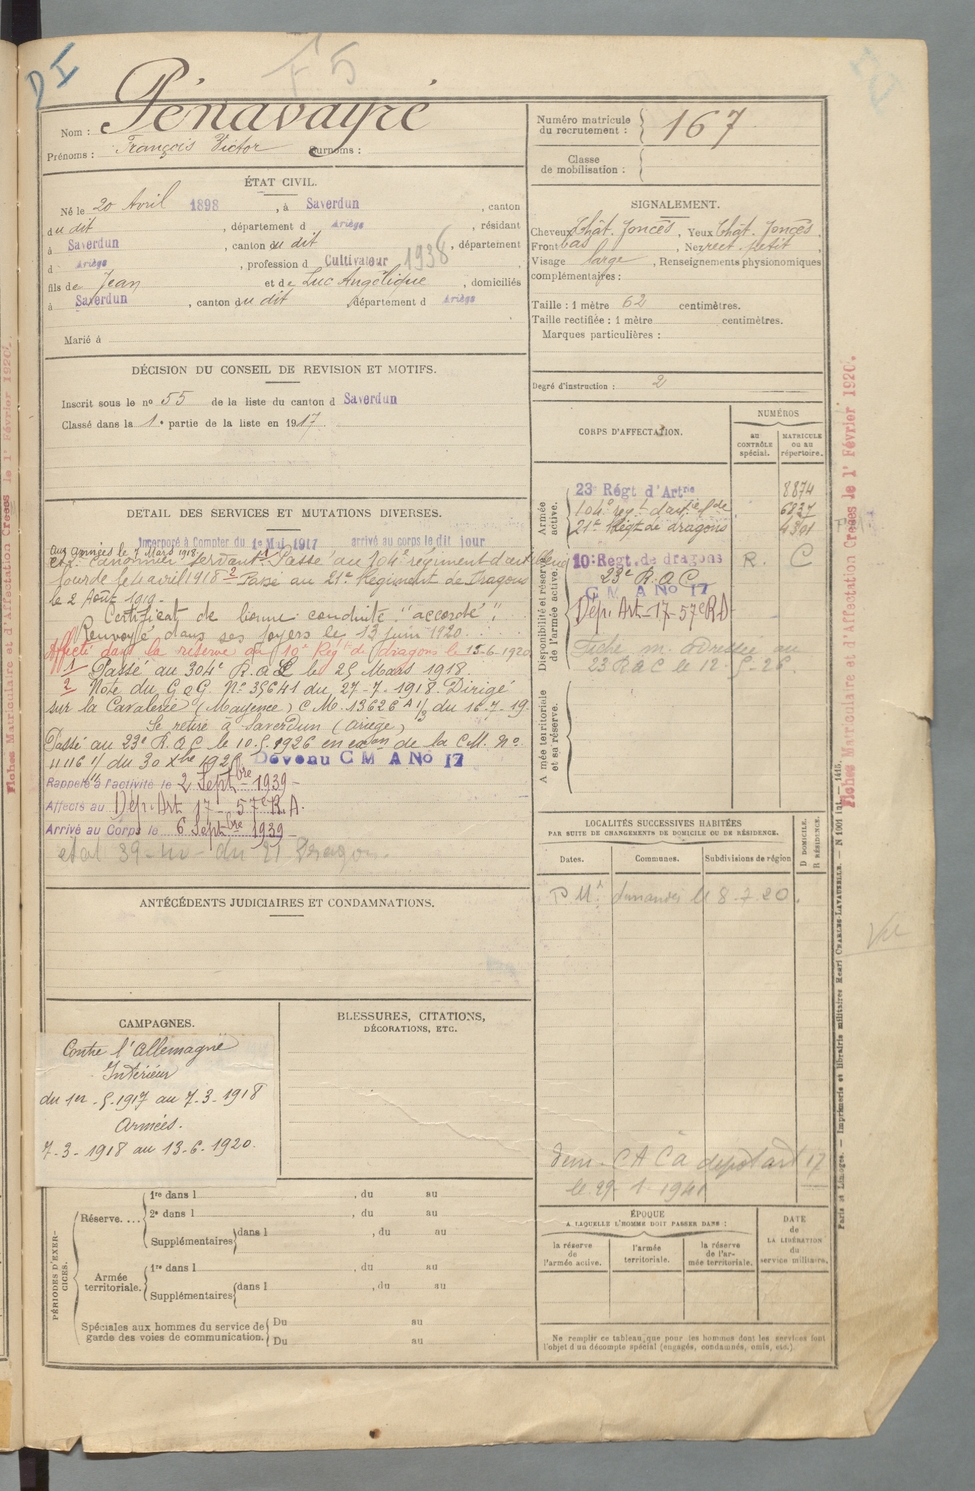 DI
F5
Nom : Pénavayré
Prénoms : François Victor Surnoms :
Numéro matricule du recrutement : 167
Classe de mobilisation :
ÉTAT CIVIL.
Né le 20 Avril 1898, à Saverdun, canton
du dit, département d Ariège, résidant
à Saverdun, canton du dit, département
d Ariège, profession d Cultivateur 1938
fils de Jean et de Luc Angélique, domiciliés
à Saverdun, canton du dit, département d Ariège
Marié à
SIGNALEMENT.
Cheveux Chât. foncés, Yeux Chât. foncés,
Front bas, Nez rect. petit,
Visage large, Renseignements physionomiques
complémentaires :
Taille : 1 mètre 62 centimètres.
Taille rectifiée : 1 mètre centimètres.
Marques particulières :
Degré d'instruction : 2
DÉCISION DU CONSEIL DE REVISION ET MOTIFS.
Inscrit sous le nº 55 de la liste du canton d Saverdun
Classé dans la 1e partie de la liste en 1917
DÉTAIL DES SERVICES ET MUTATIONS DIVERSES.
Incorporé à Compter du 1e Mai 1917 arrivé au corps le dit jour
aux armées le 7 Mars 1918
canonnier servant. 1 Passé au 104e régiment d'art
lourde le 4 avril 1918 2 Passé au 21e Régiment de Dragons
le 2 Août 1919.
Certificat de bonne conduite "accordé".
Renvoyé dans ses foyers le 13 juin 1920.
Affecté dans la réserve au 10e Régt de dragons le 13-6-1920
1 - Passé au 304e R.A.L. le 25 Mars 1918.
2 Note du G.Q.G. Nº 35641 du 27-7-1918. Dirigé
sur la Cavalerie (Mayence) C.M. 13626 A 1/3 du 16-7-19
Se retire à Saverdun (Ariège)
Passé au 23e R.A.C. le 10-5-1926 en exon de la C.M. Nº
du 30 Xbre 192 Devenu C M A No 17
Rappelé à l'activité le 2 Septbre 1939 -
Affecté au Dép. Art 17 - 57e R.A.
Arrivé au Corps le 6 Septbre 1939 -
etat 39- du 21 Dragon
CORPS D'AFFECTATION.
NUMÉROS
au CONTRÔLE spécial.
MATRICULE ou au répertoire.
Armée active.
23e Régt d'Artie 8874
104e regt d'artie lde 6837
21e Régt de dragons 4301
Disponibilité et réserve de l'armée active.
10e Régt. de dragons R. C
23e R.A.C
C M A No 17
Dép. Art - 17 - 57e RA
Fiche m. adressée au
23 RAC le 12-5-26
Armée territoriale et sa réserve.
LOCALITÉS SUCCESSIVES HABITÉES
PAR SUITE DE CHANGEMENTS DE DOMICILE OU DE RÉSIDENCE.
Dates.
Communes.
Subdivisions de région
D DOMICILE.
R RÉSIDENCE.
le 8.7.20.
CACA depot art 17
le 29-1-1941
ANTÉCÉDENTS JUDICIAIRES ET CONDAMNATIONS.
CAMPAGNES.
Contre l'Allemagne
Intérieur
du 1er-5-1917 au 7-3-1918
Armées.
7-3-1918 au 13-6-1920.
BLESSURES, CITATIONS,
DÉCORATIONS, ETC.
PÉRIODES D'EXERCICES.
Réserve....
1re dans l , du au
2e dans l , du au
Supplémentaires dans l , du au
Armée territoriale.
1re dans l , du au
Supplémentaires dans l , du au
Spéciales aux hommes du service de garde des voies de communication.
Du au
Du au
ÉPOQUE
A LAQUELLE L'HOMME DOIT PASSER DANS :
la réserve de l'armée active.
l'armée territoriale.
la réserve de l'armée territoriale.
DATE de LA LIBÉRATION du service militaire.
Ne remplir ce tableau que pour les hommes dont les services font
l'objet d'un décompte spécial (engagés, condamnés, omis, etc.).
Fiches Matriculaire et d'Affectation Crées le 1r Février 1920.
Paris et Limoges. — Imprimerie et librairie militaires Henri CHARLES-LAVAUZELLE.
Vu